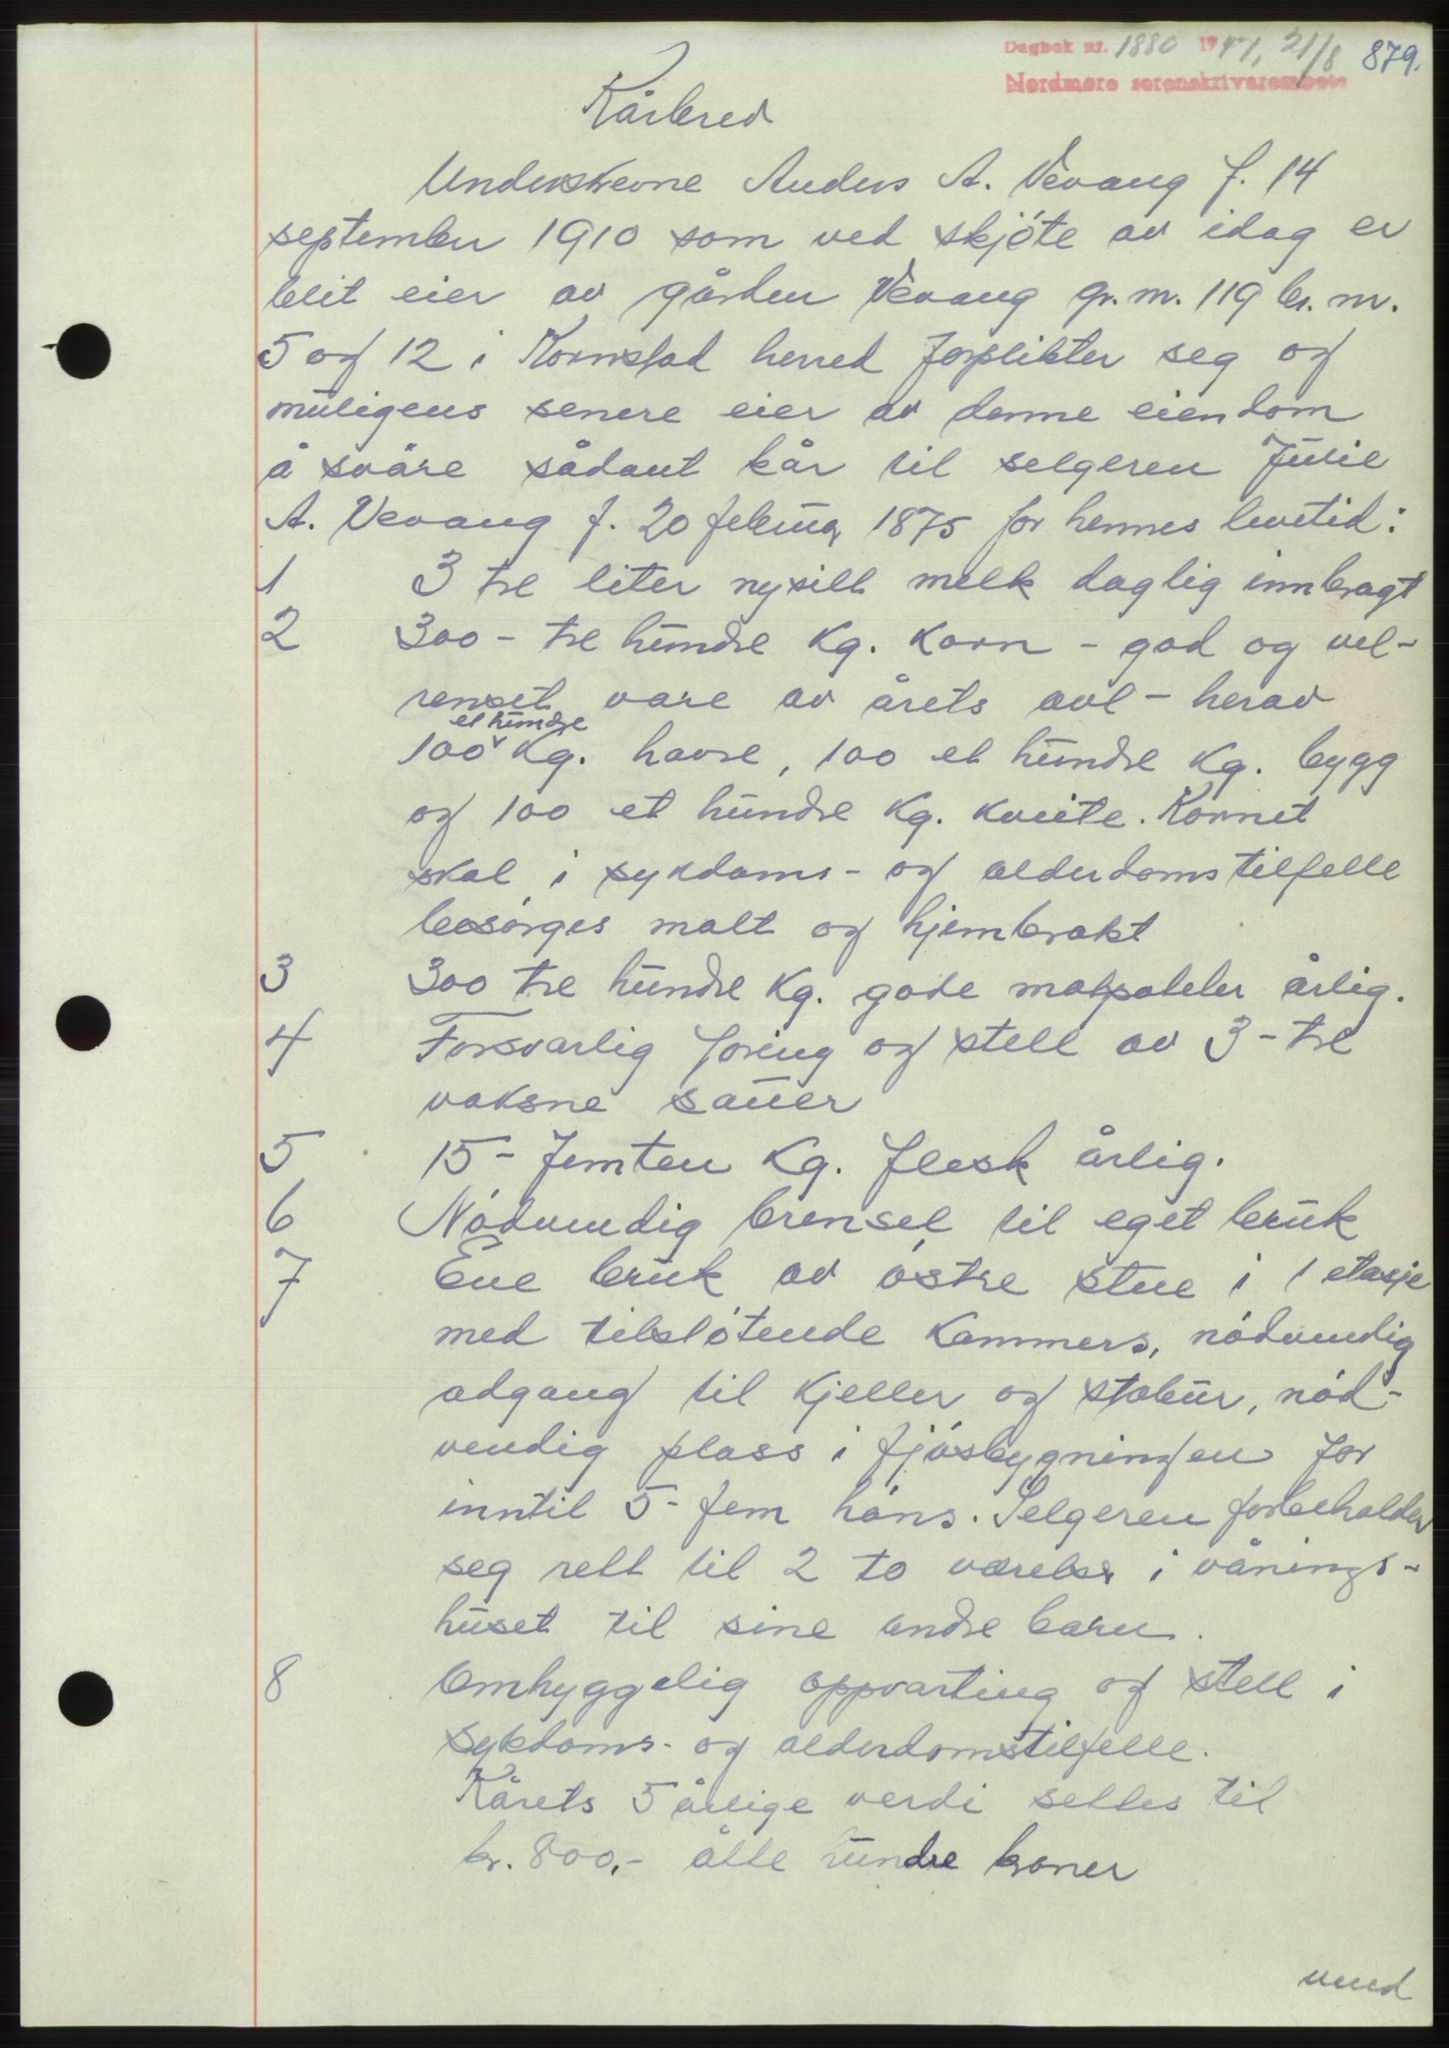 Dagbok nr. 1880 1947, 21/8 879.
Nordmøre sorenskrivarembete
Kårbrev
Underskrevne Anders A. Vevang f. 14
september 1910 som ved skjöte av idag er
blit eier av gården Vevang gr. nr. 119 br. nr.
5 og 12 i Kornstad herred forplikter seg og
muligens senere eier av denne eiendom
å sväre sådant kår til selgeren Julie
A. Vevang f. 20 februar 1875 for hennes levetid:
1 3 tre liter nysilt melk daglig innbragt
2 300 - tre hundre Kg. korn - god og vel-
renset vare av årets avl - herav
et hundre
100 Kg. havre, 100 et hundre Kg. bygg
og 100 et hundre Kg. kveite. Kornet
skal i sykdoms- og alderdomstilfelle
besörges malt og hjembrakt
3 300 tre hundre Kg. gode matpoteter årlig.
4 Forsvarlig foring og stell av 3 - tre
vaksne sauer
5 15 - femten Kg. flesk årlig.
6 Nödvendig brensel til eget bruk
7 Ene bruk av östre stue i 1 etasje
med tilstötende kammers, nödvendig
adgang til kjeller og stabur, nöd-
vendig plass i fjösbygningen for
inntil 5 - fem höns. Selgeren forbeholder
seg rett til 2 to værelser i vånings-
huset til sine andre barn.
8 Omhyggelig oppvarting og stell i
sykdoms- og alderdomstilfelle.
Kårets 5 årlige verdi settes til
kr. 800,- åtte hundre kroner
vend